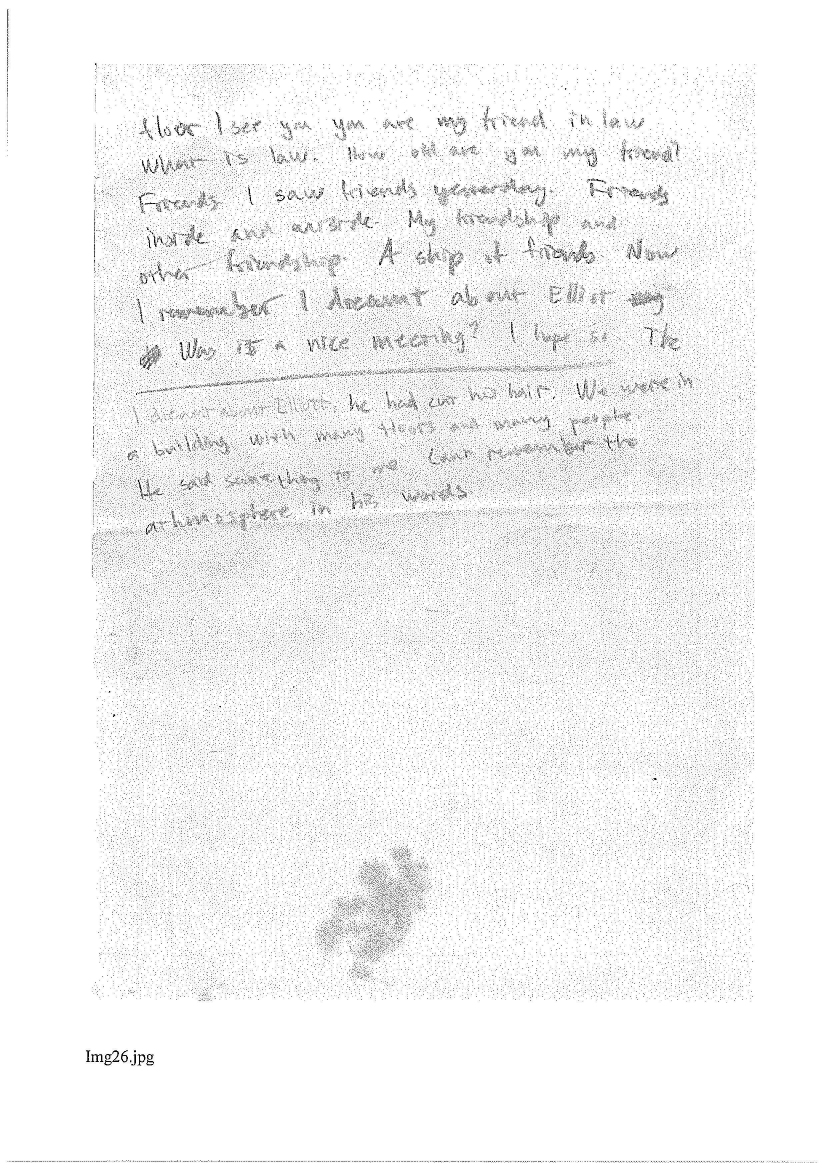 floor I see you you are my friend in law
What is law. How old are you my friend?
Friends I saw friends yesterday. Friends
inside and outside. My friendship and
other friendship. A ship of friends. Now
I remember I dreamt about Elliot
Was it a nice meeting? I hope so. The
I dreamt about Elliott, he had cut his hair. We were in
a building with many floors and many people.
He said something to me. Cant remember the
athmosphere in his words
Img26.jpg